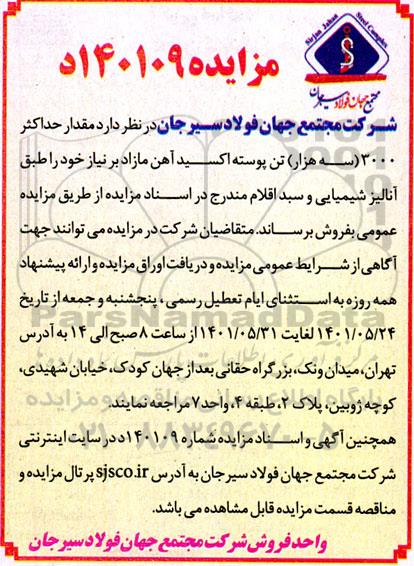 Sirjan Jahan Steel Complex
مجتمع جهان فولاد سیرجان
مزایده ۱۴۰۱۰۹د
شرکت مجتمع جهان فولاد سیرجان در نظر دارد مقدار حداکثر
۳۰۰۰ (سه هزار) تن پوسته اکسید آهن مازاد بر نیاز خود را طبق
آنالیز شیمیایی و سبد اقلام مندرج در اسناد مزایده از طریق مزایده
عمومی بفروش برساند. متقاضیان شرکت در مزایده می توانند جهت
آگاهی از شرایط عمومی مزایده و دریافت اوراق مزایده و ارائه پیشنهاد
همه روزه به استثنای ایام تعطیل رسمی، پنجشنبه و جمعه از تاریخ
۱۴۰۱/۰۵/۲۴ لغایت ۱۴۰۱/۰۵/۳۱ از ساعت ۸ صبح الی ۱۴ به آدرس
تهران، میدان ونک، بزرگراه حقانی بعد از جهان کودک، خیابان شهیدی،
کوچه ژوبین، پلاک ۲، طبقه ۴، واحد ۷ مراجعه نمایند.
همچنین آگهی و اسناد مزایده شماره ۱۴۰۱۰۹د در سایت اینترنتی
شرکت مجتمع جهان فولاد سیرجان به آدرس sjsco.ir پرتال مزایده و
مناقصه قسمت مزایده قابل مشاهده می باشد.
واحد فروش شرکت مجتمع جهان فولاد سیرجان
ParsNamadData